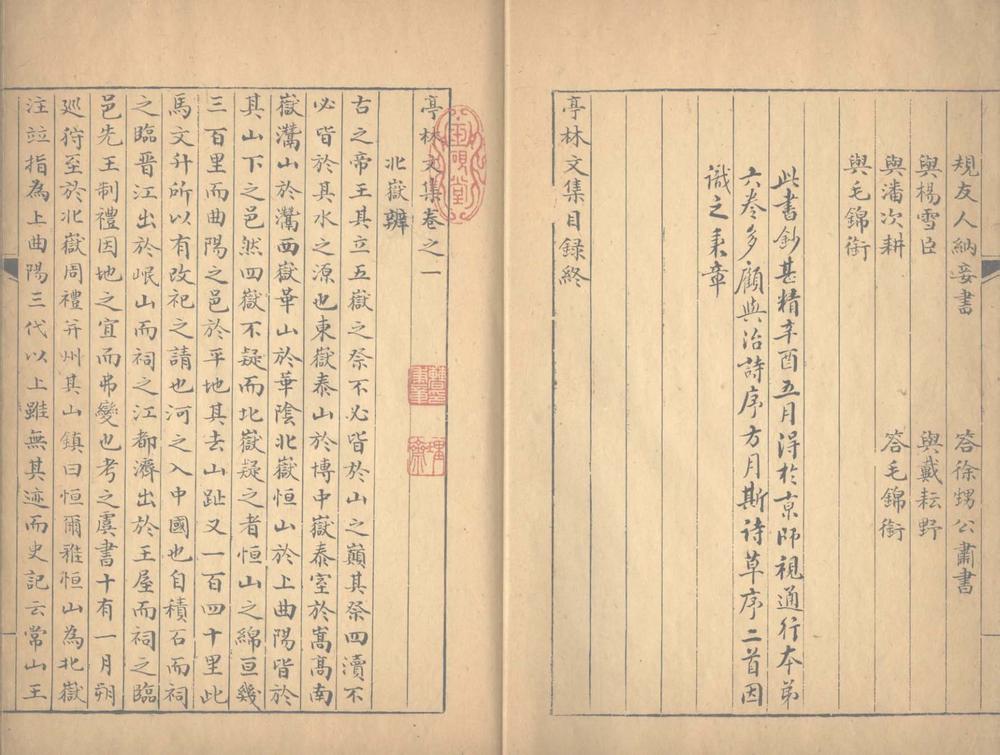 規友人納妾書
答徐甥公肅書
與楊雪臣
與戴耘野
與潘次耕
答毛錦銜
與毛錦銜
此書鈔甚精辛酉五月淂於京師視通行本弟
六卷多顧與治詩序方月斯诗草序二首因
識之秉章
亭林文集目録終
亭林文集卷之一
北嶽辨
古之帝王其立五嶽之祭不必皆於山之巔其祭四瀆不
必皆於其水之源也東嶽泰山於博中嶽泰室於嵩高南
嶽灊山於灊西嶽華山於華陰北嶽恒山於上曲陽皆於
其山下之邑然四嶽不疑而北嶽疑之者恒山之綿亘幾
三百里而曲陽之邑於平地其去山趾又一百四十里此
馬文升所以有改祀之請也河之入中國也自積石而祠
之臨晋江出於岷山而祠之江都濟出於王屋而祠之臨
邑先王制禮因地之宜而弗變也考之虞書十有一月朔
廵狩至於北嶽周禮并州其山鎮曰恒爾雅恒山為北嶽
注竝指為上曲陽三代以上雖無其迹而史記云常山王
玉硯堂